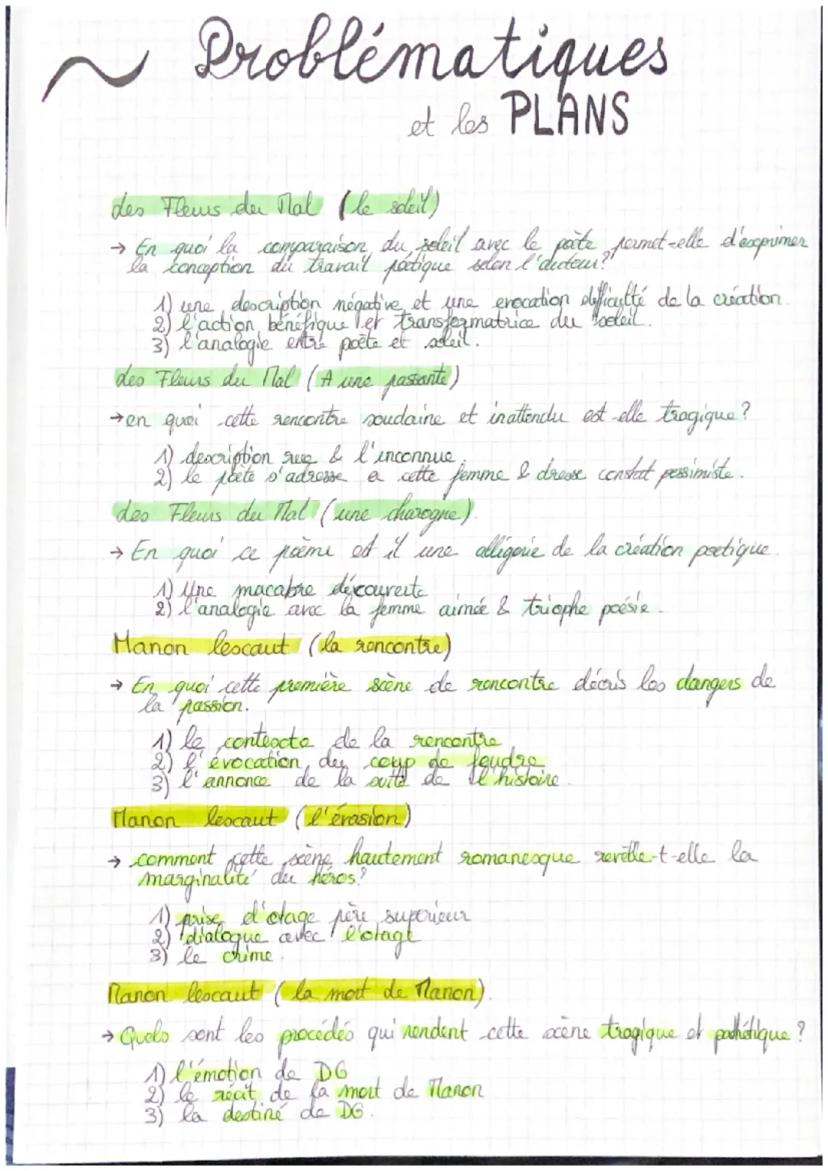 ~ Problématiques
et les PLANS
les Fleurs du Mal (le soleil)
→ En quoi la comparaison du soleil avec le poète permet-elle d'exprimer
la conception du travail poétique selon l'auteur?
1) une description négative et une evocation difficulté de la création.
2) l'action bénéfique et transformatrice du soleil.
3) l'analogie entre poète et soleil.
les Fleurs du Mal (A une passante)
→ en quoi cette rencontre soudaine et inattendu est-elle tragique?
1) description rue & l'inconnue.
2) le poète s'adresse a cette femme & dresse constat pessimiste.
les Fleurs du Mal (une charogne).
→ En quoi ce poème est il une allégorie de la création poetique.
1) Une macabre découverte
2) l'analogie avec la femme aimée & triophe poésie.
Manon lescaut (la rencontre)
→ En quoi cette première scène de rencontre décris les dangers de
la passion.
1) le contexte de la rencontre
2) l'évocation du coup de foudre
3) l'annonce de la suite de l'histoire.
Manon lescaut (l'évasion)
→ comment cette scène hautement romanesque revèlle-t-elle la
marginalité du héros?
1) prise d'otage père superieur
2) dialogue avec l'otage
3) le crime.
Manon lescaut (la mort de Manon).
→ Quels sont les procédés qui rendent cette scène tragique et pathétique?
1) l'émotion de DG
2) le récit de la mort de Manon
3) la destiné de DG.